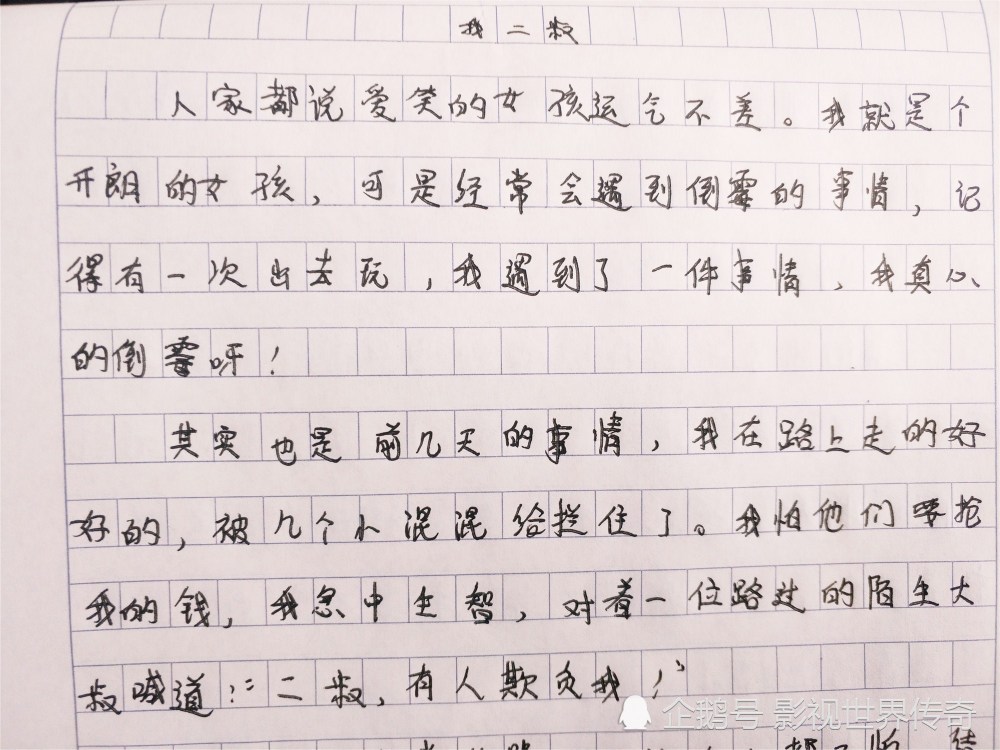 我二叔
人家都说爱笑的女孩运气不差。我就是个
开朗的女孩，可是经常会遇到倒霉的事情，记
得有一次出去玩，我遇到了一件事情，我真心
的倒霉呀！
其实也是前几天的事情，我在路上走的好
好的，被几个小混混给拦住了。我怕他们要抢
我的钱，我急中生智，对着一位路过的陌生大
叔喊道：“二叔，有人欺负我！”
企鹅号 影视世界传奇